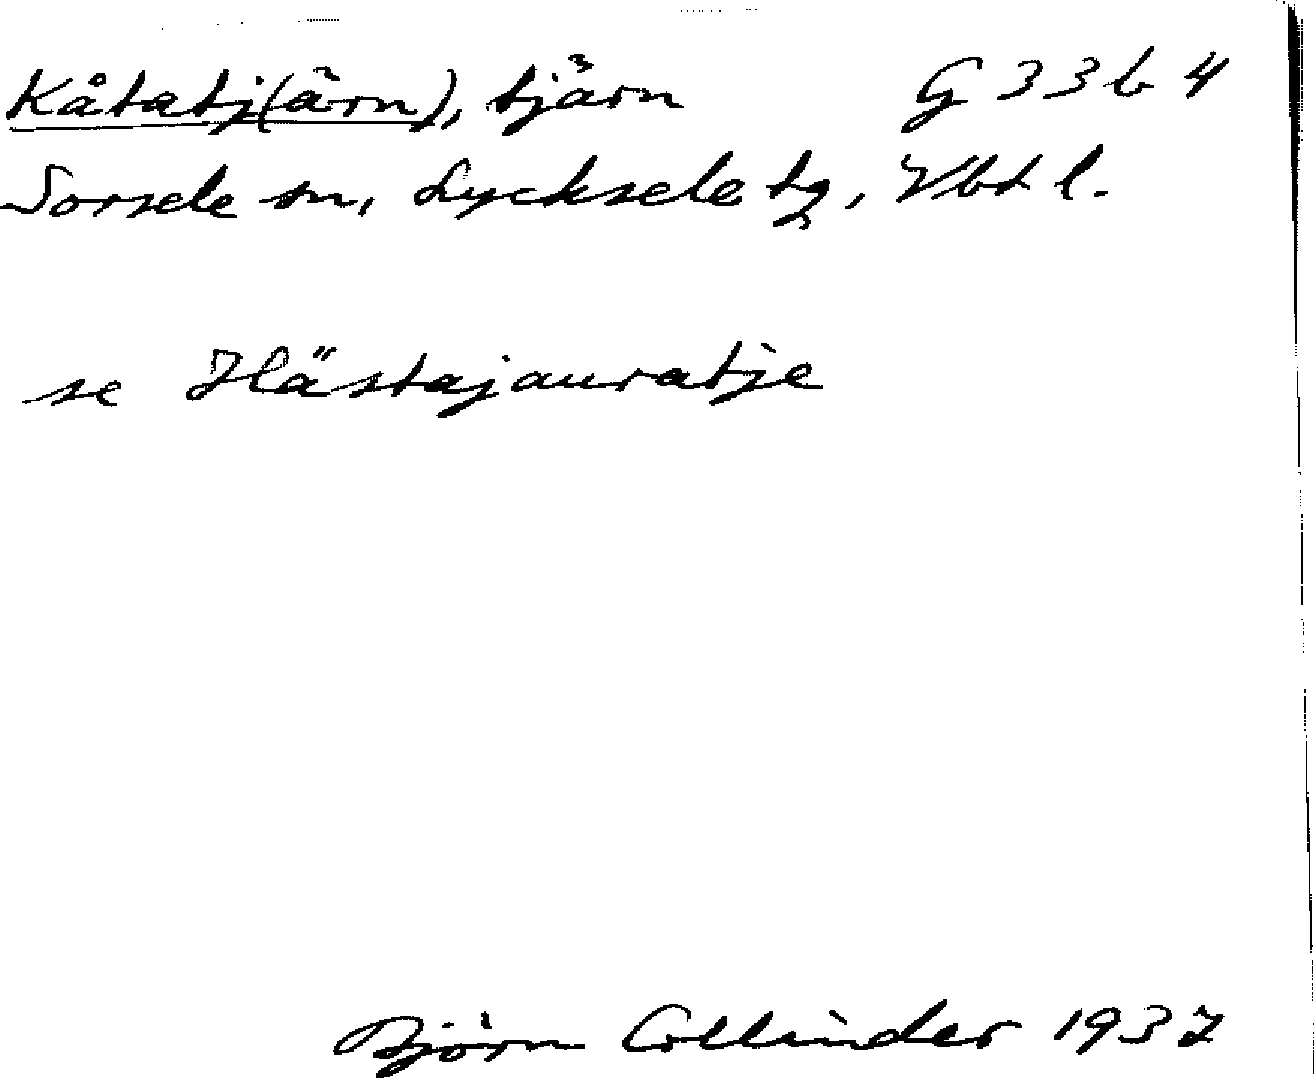 Kåtatj(ärn), tjärn G 33 b 4
Sorsele sn, Lycksele tg, Vbt l.
se Hästajauratje
Björn Collinder 1937